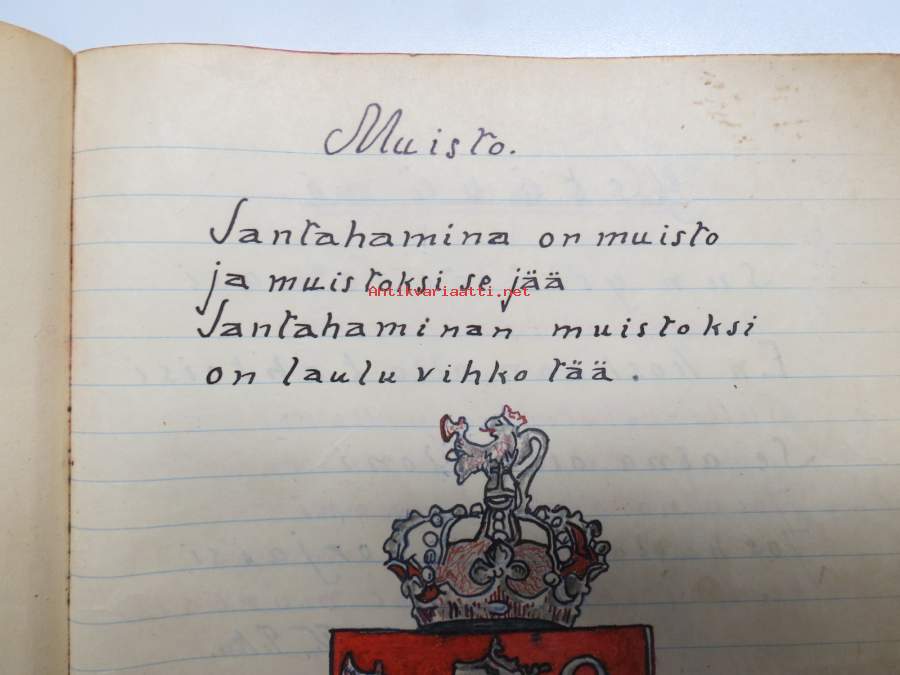 Muisto.
Santahamina on muisto
ja muistoksi se jää
Antikvariaatti.net
Santahaminan muistoksi
on laulu vihko tää.